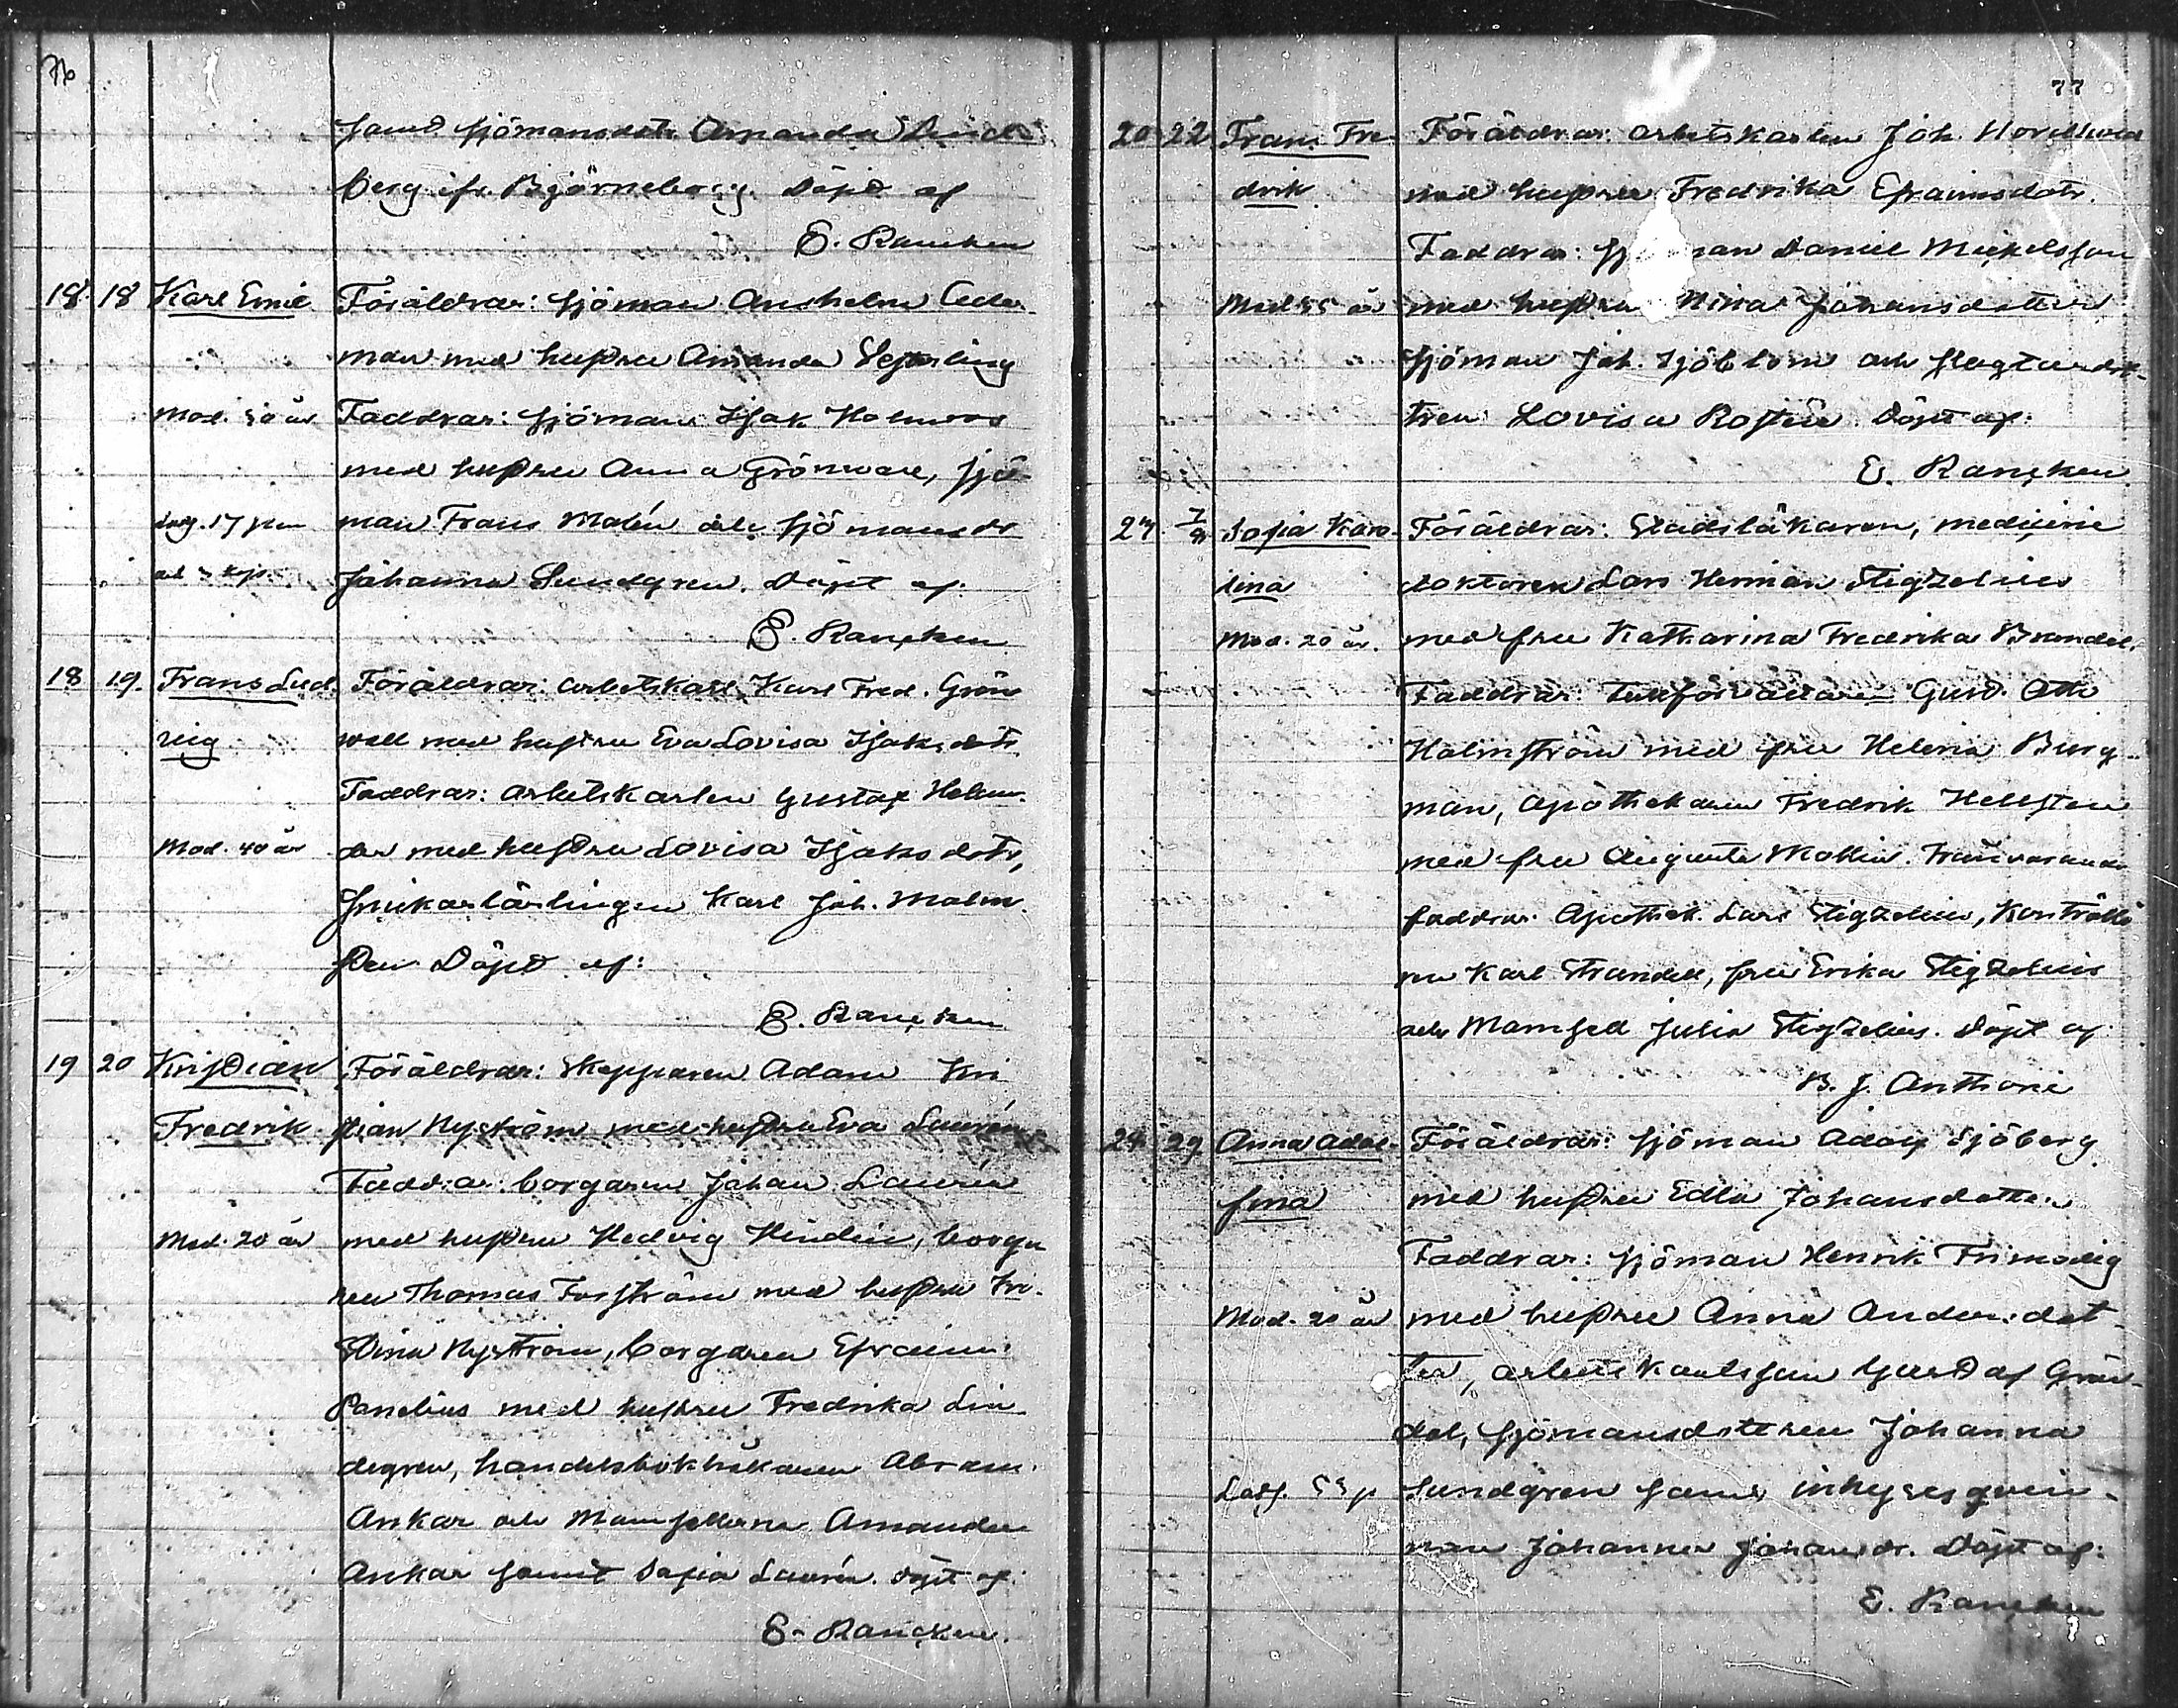 76
samt sjömansdotr Amanda Lind
berg ifr. Björneborg. Döpt af
E. Rancken
18. 18 Karl Emil Föräldrar: sjöman Anshelm Ceder
man med hustru Amanda
Mod. 30 år Faddrar: sjöman Isak Holmroos
med hustru Anna Grönwall, sjö
man Frans Malén och sjömansdr
Johanna Sundgren. Döpt af:
E. Rancken
18 19. Frans Lud. Föräldrar: arbetskarl. Karl Fred. Grön
vig wall med hustru Eva Lovisa Isaksdotr
Faddrar: arbetskarlen Gustaf Helan
Mod. 40 år der med hustru Lovisa Isaksdotr,
snickarlärlingen Karl Joh. Malm
sten Döpt af:
E. Rancken
19 20 Kristian Föräldrar: Skepparen Adam Kri
Fredrik stian Nyström med hustru Eva Laurén
Faddrar: borgaren Johan Laurén
Mod. 20 år med hustru Hedvig Hindén, borga
ren Thomas Forsström med hustru Kri-
stina Nyström, borgaren Efraim
Panelius med hustru Fredrika Lin
degren, handelsbokhållaren Abram
Ankar och Mamsellerna Amanda
Ankar samt Sofia Laurén. Döpt af:
E. Rancken.
77
20 22 Frans Fre- Föräldrar: arbetskarlen Joh.
drik med hustru Fredrika Efraimsdotr.
Faddrar: sj man Daniel Mickelsson
Mod 35 år med hustru Mina Johansdotter
sjöman Joh. Sjöblom och
tren Lovisa Rostén. Döpt af:
E. Rancken
27 Sofia Karo- Föräldrar: Stadsläkaren, medicine
lina doktoren Lars Herman Stigzelius
Mod. 20 år. med fru Katharina Fredrika Brandel.
Faddrar: Tullförvaltaren Gust. Otto
Holmström med fru Helena Burg-
man, Apothekaren Fredrik Hellsten
med fru Augusta Mollin. Frånvarande
faddrar: Apothek. Lars Stigzelius, Kontrollö
ren Karl Strandell, fru Erika Stigzelius
och Mamsell Julia Stigzelius. Döpt af:
B. J. Anthoni
24 29 Anna Adol- Föräldrar: sjöman Adolf Sjöberg
fina med hustru Edla Johansdotter
Faddrar: sjöman Henrik Frimodig
Mod. 20 år med hustru Anna Andersdot-
ter, arbetskarlsson Gustaf Grön-
dal, sjömansdottren Johanna
Sundgren samt inhyses qvin-
nan Johanna Johansdr. Döpt af:
E. Rancken